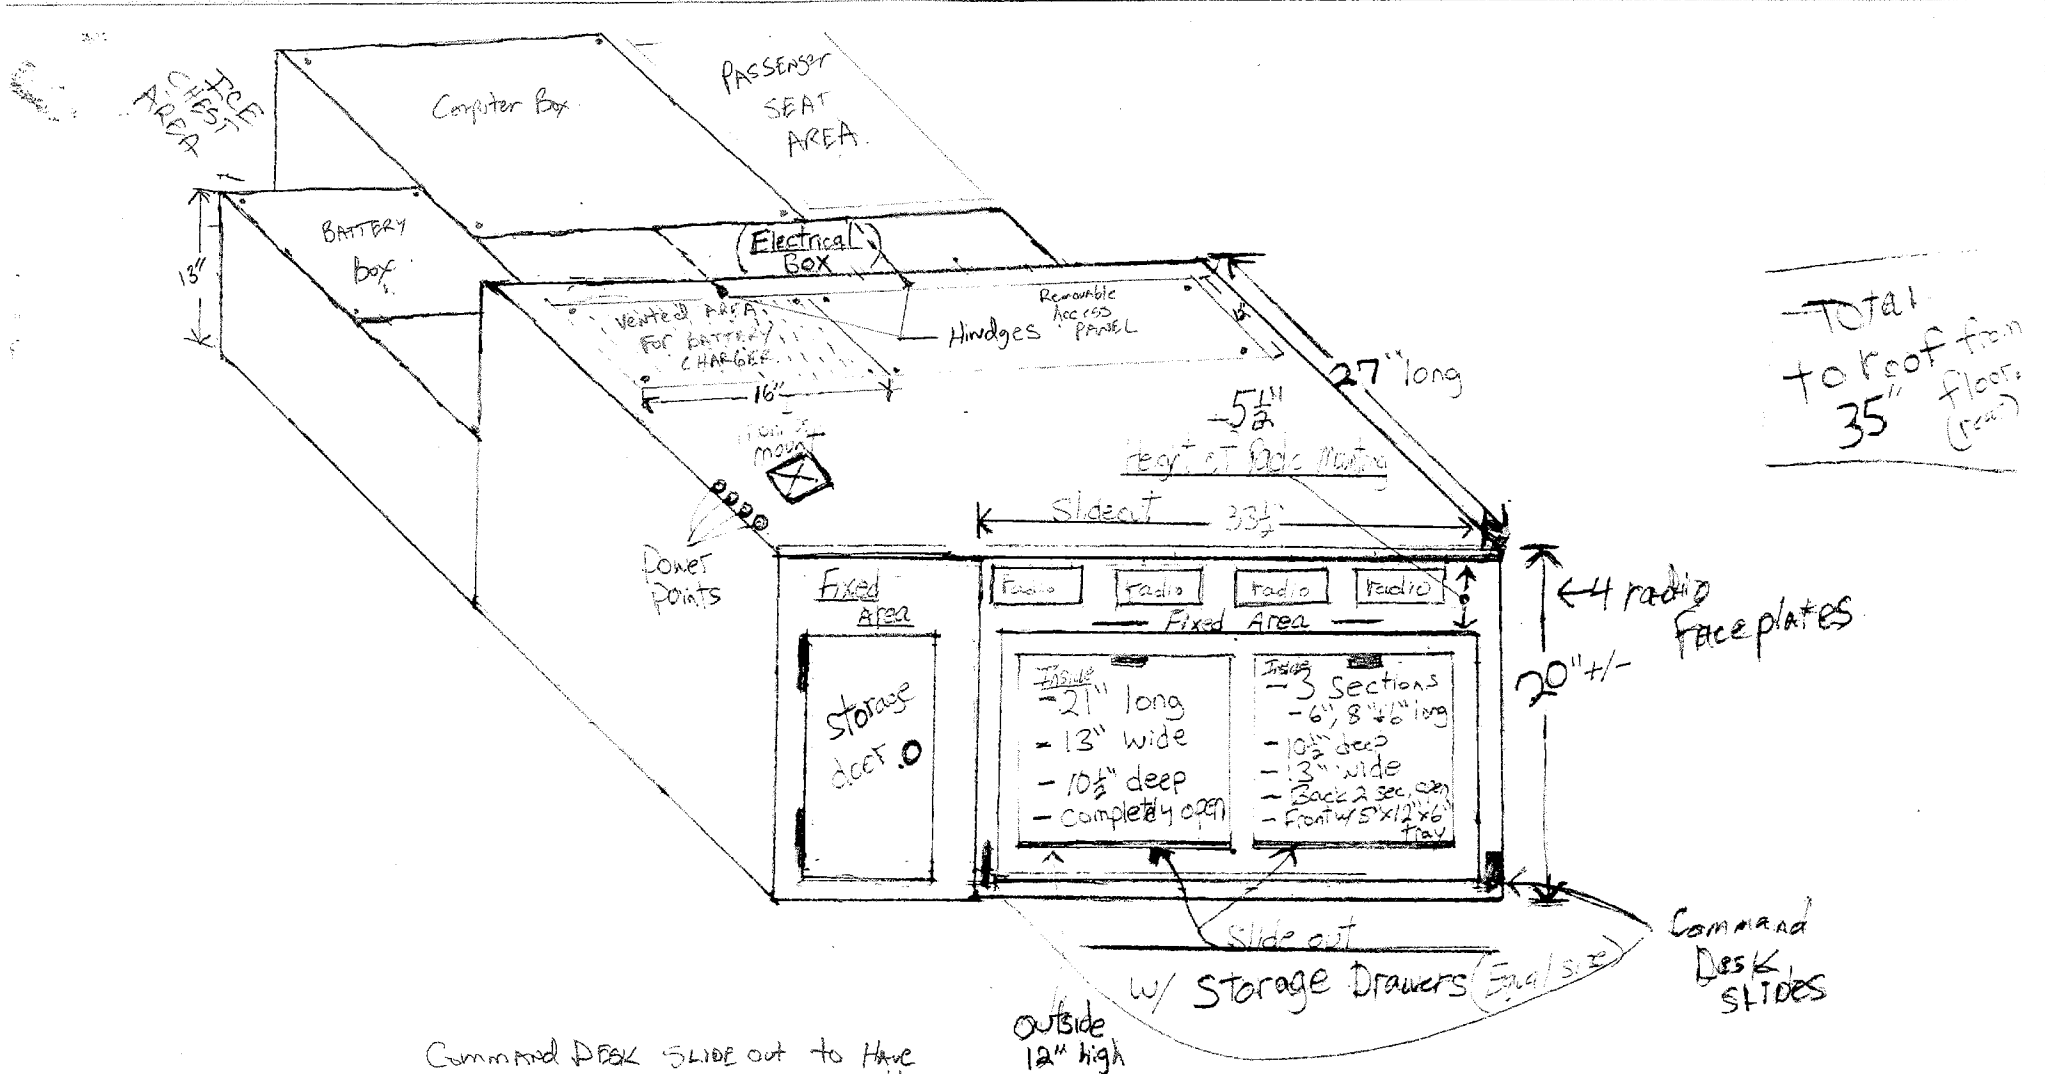 ICE
CHEST
AREA
Computer Box
PASSENger
SEAT
AREA.
BATTERY
box.
13"
(Electrical)
BOX
Vented AREA
FOR BATTERY
CHARGER
16"
Hindges
Removable
Access
PANEL
12"
27" long
-Total
to roof from
floor.
35"
(rear)
mount
- 5 1/2"
Height of Radio Mounting
Slideout 33 1/2"
Power
Points
Fixed
Area
radio
radio
radio
radio
— Fixed Area —
←4 radio
Faceplates
20" +/-
storage
door
Inside
- 21" long
- 13" wide
- 10 1/2" deep
- Completely open
Inside
- 3 Sections
- 6", 8" & 6" long
- 10 1/2" deep
- 13" wide
- Back 2 sec. open
- Front w/ 5"x12"x6"
tray
Slide out
w/ Storage Drawers (Equal size)
Command
Desk
SLIDES
Outside
12" high
Command DESK SLIDE out to Have